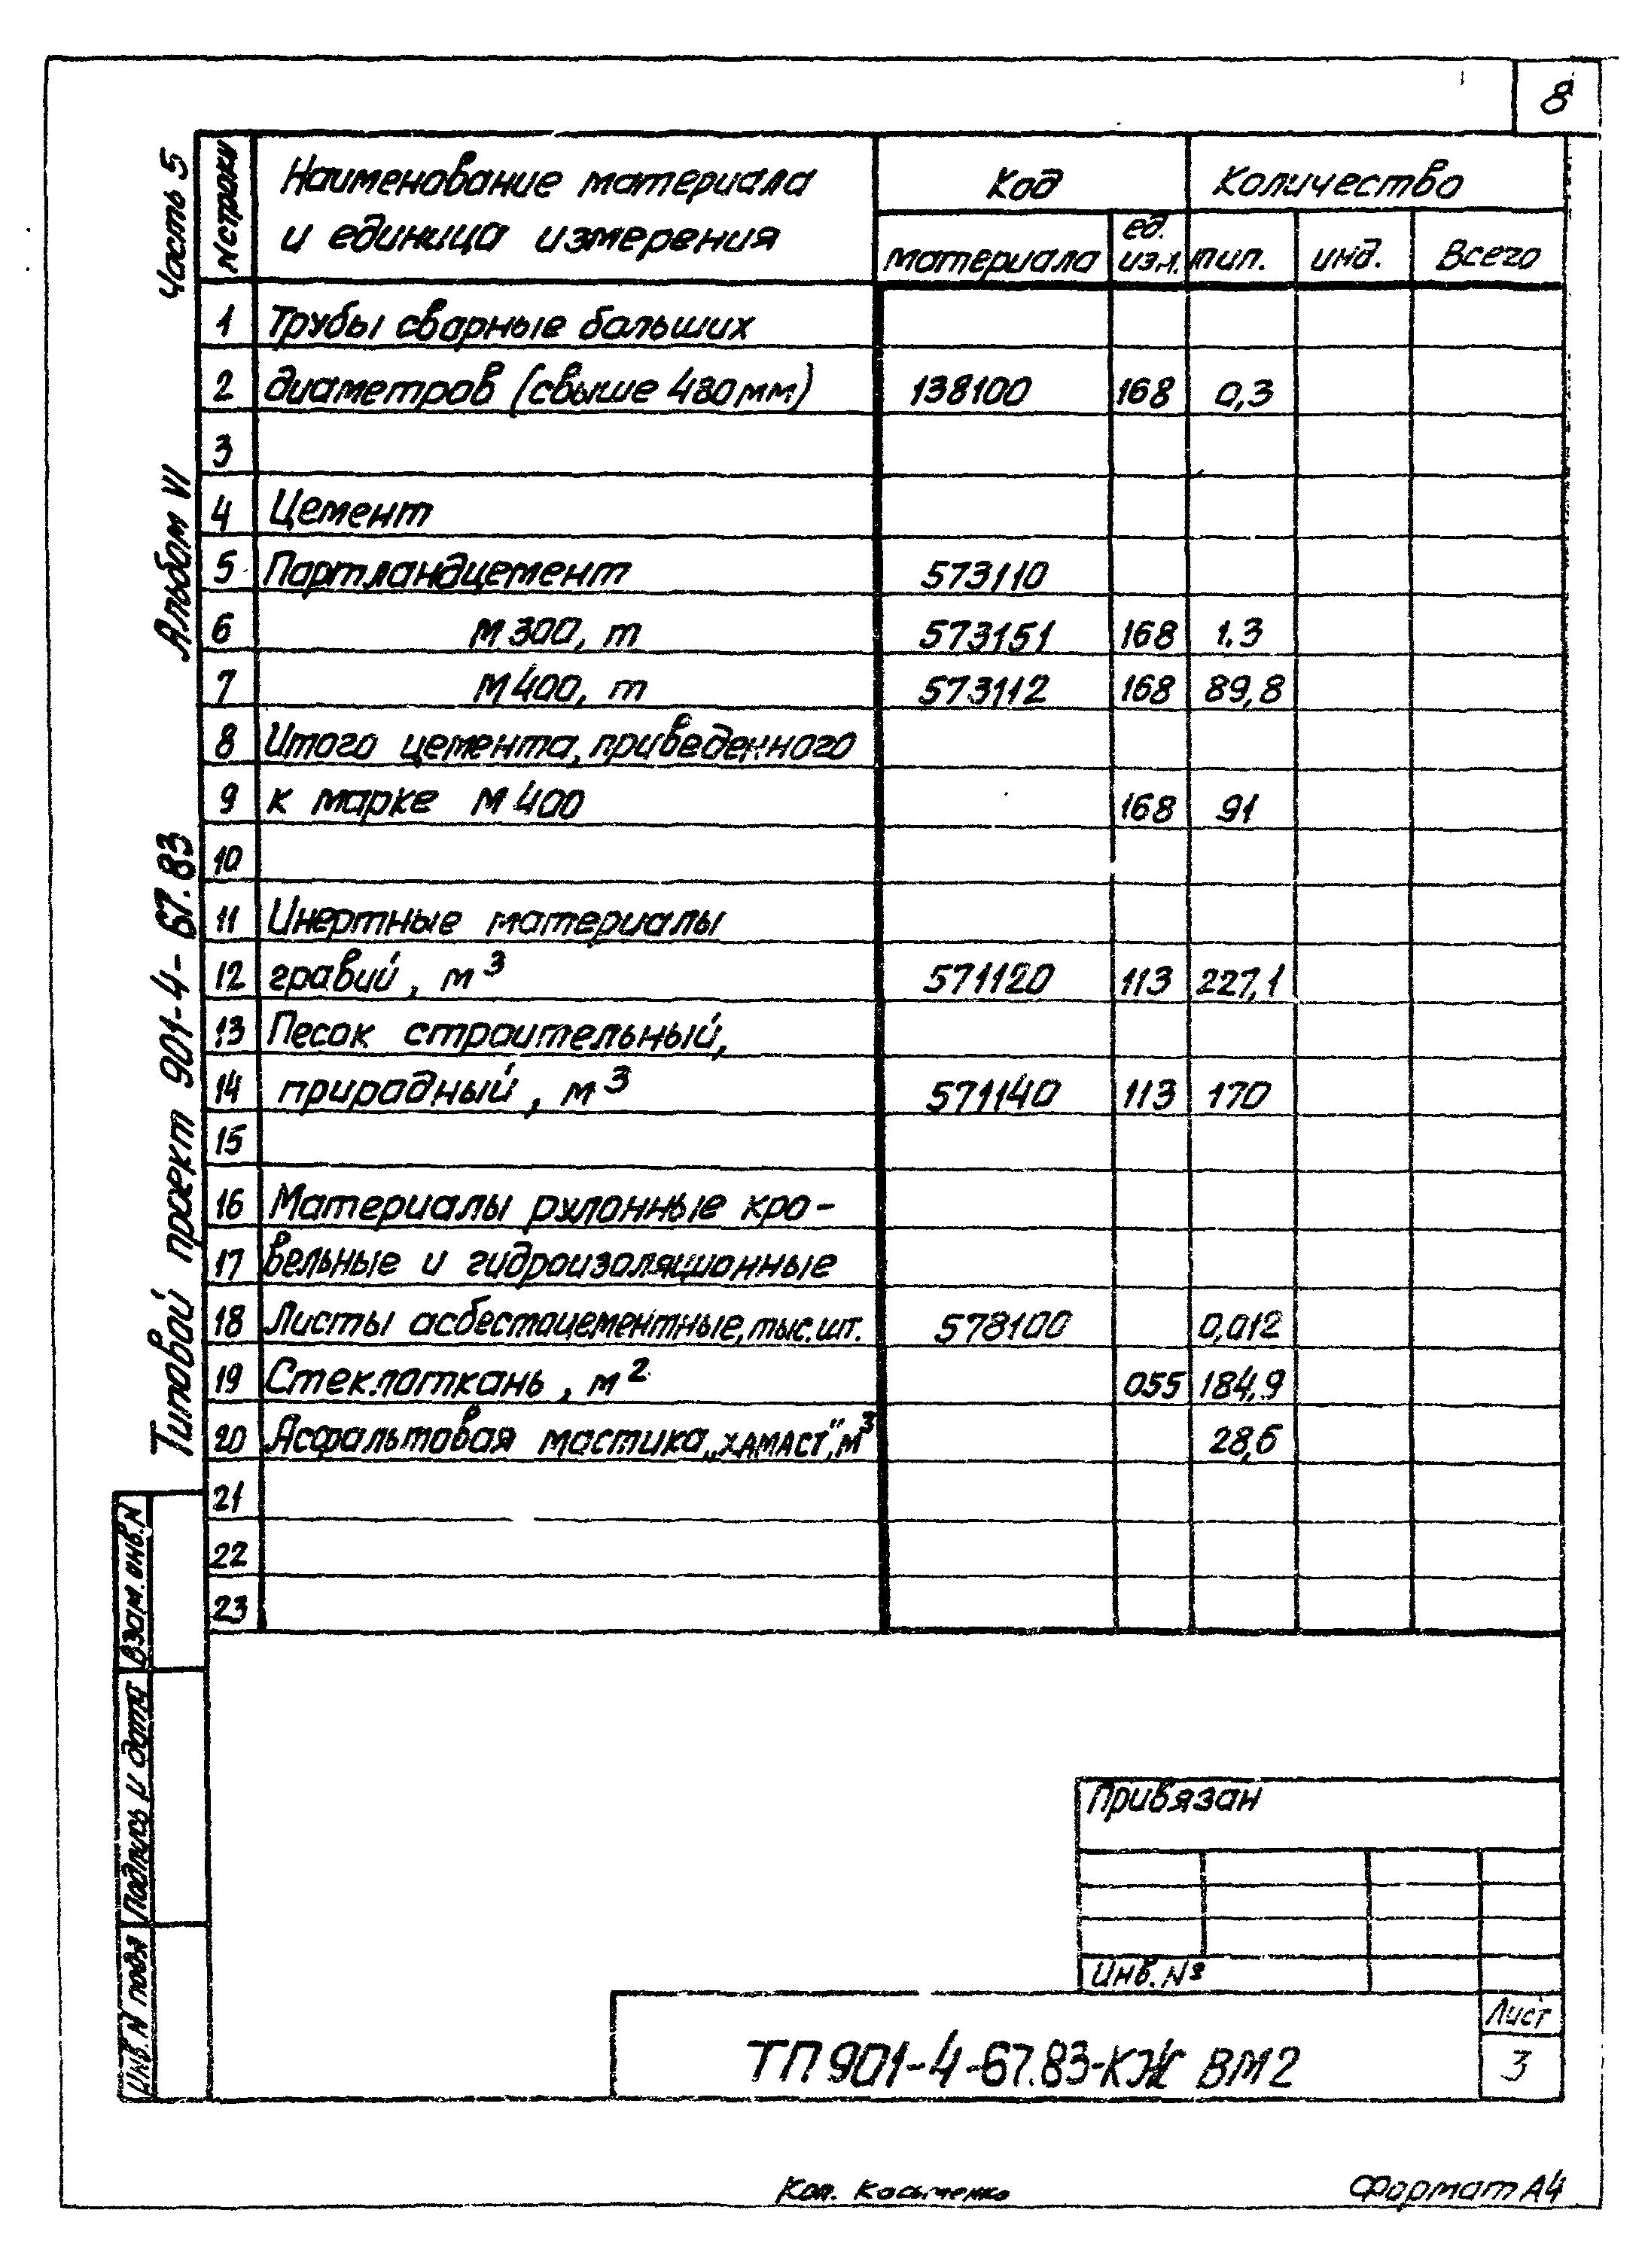 8
Часть 5
Альбом VI
Типовой проект 901-4-67.83
N строки
Наименование материала
и единица измерения
Код
Количество
материала
ед.
изм.
тип.
инд.
Всего
1 Трубы сварные больших
2 диаметров (свыше 480 мм) 138100 168 0,3
3
4 Цемент
5 Портландцемент 573110
6 М 300, т 573151 168 1.3
7 М 400, т 573112 168 89,8
8 Итого цемента, приведенного
9 к марке М 400 168 91
10
11 Инертные материалы
12 гравий, м³ 571120 113 227,1
13 Песок строительный,
14 природный, м³ 571140 113 170
15
16 Материалы рулонные кро-
17 вельные и гидроизоляционные
18 Листы асбестоцементные, тыс. шт. 578100 0,012
19 Стеклоткань, м² 055 184,9
20 Асфальтовая мастика „ХАМАСТ", м³ 28,6
21
22
23
Взам. инв. N
Подпись и дата
Инв. N подл
Привязан
Инв. №
ТП 901-4-67.83-КЖ ВМ2
Лист
3
Коп.
Формат А4